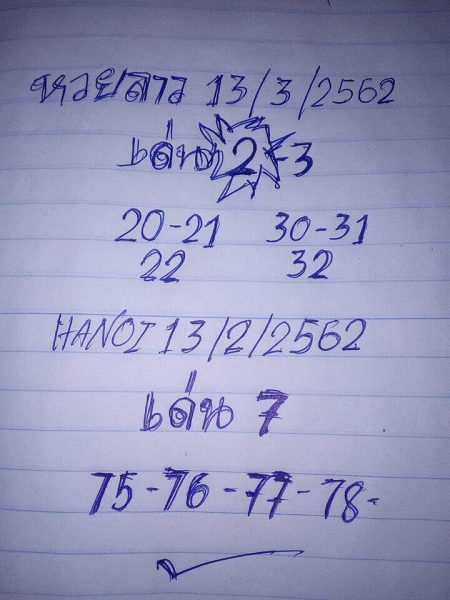 หวยลาว 13/3/2562
เด่น 2-3
20-21 30-31
22 32
HANOI 13/2/2562
เด่น 7
75-76-77-78-